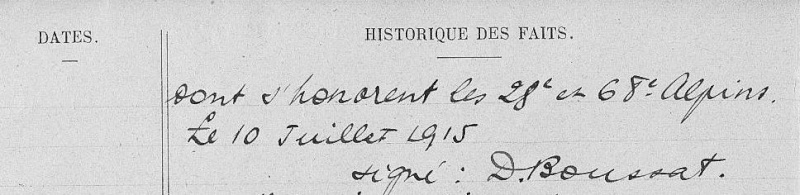 DATES.
HISTORIQUE DES FAITS.
dont s'honorent les 28e et 68e Alpins.
Le 10 Juillet 1915
signé : D. Boussat.